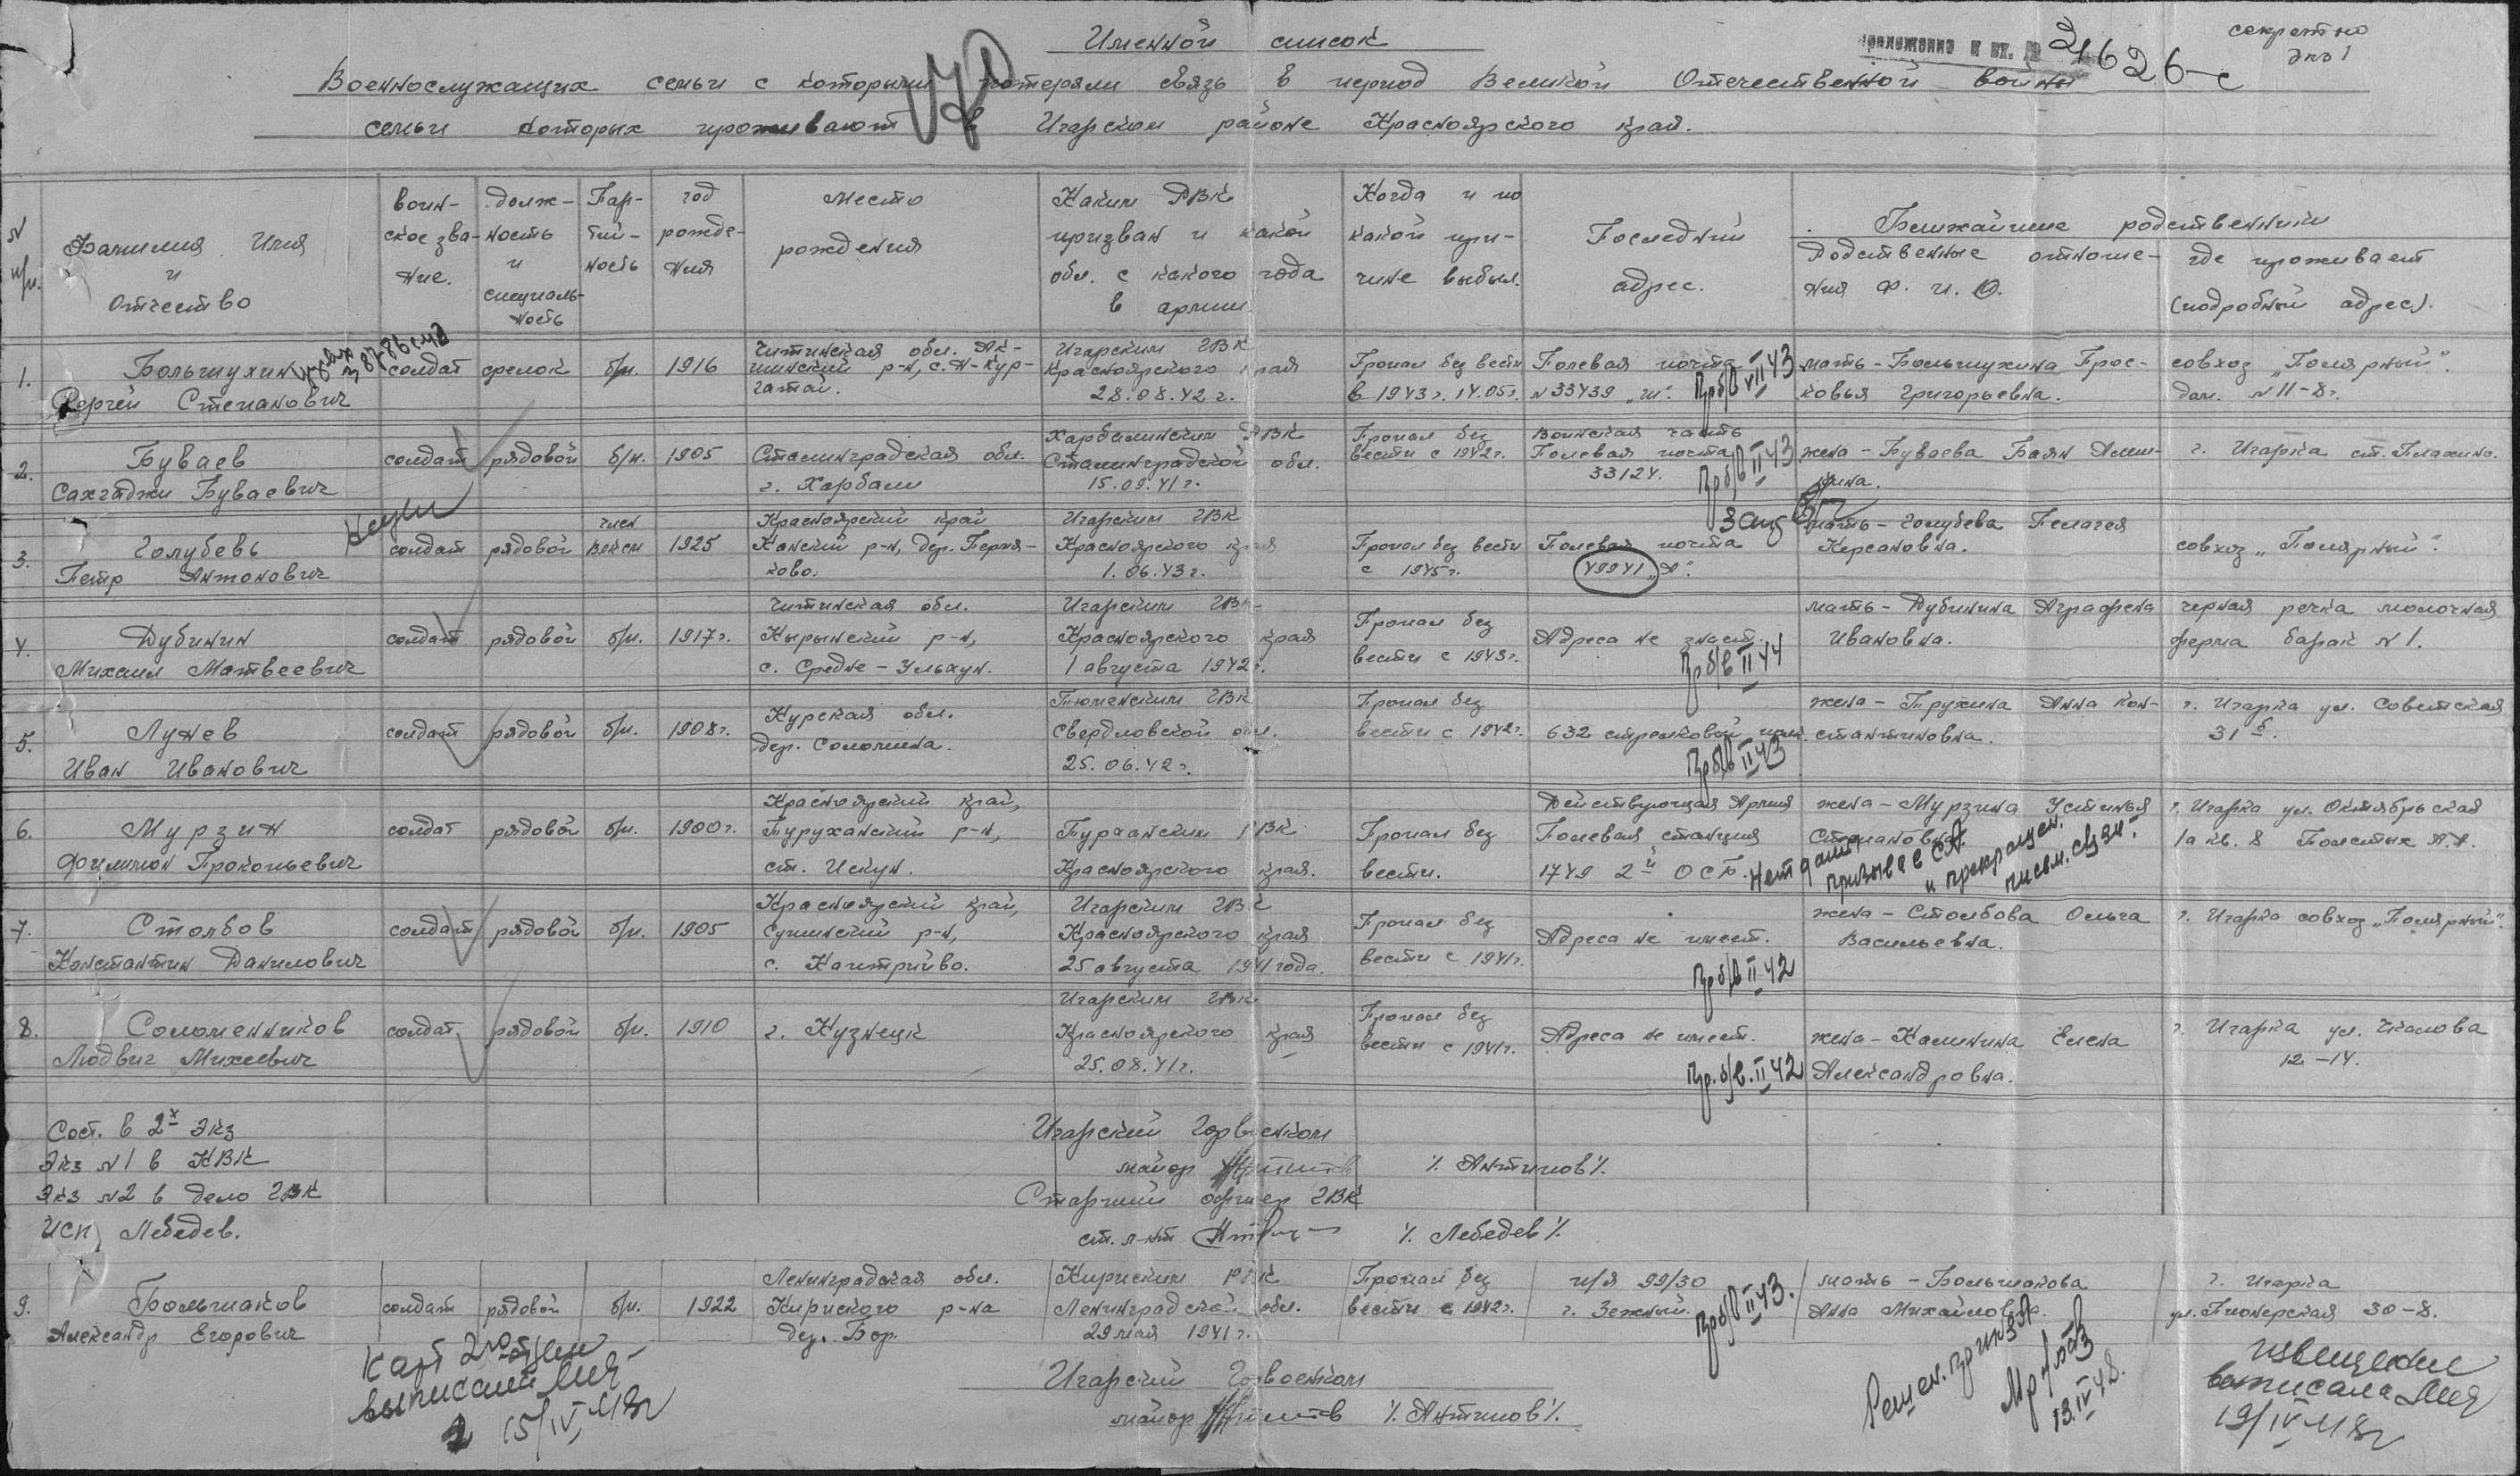 Именной список
секретно
экз 1
приложение к вх. № 21626-с
Военнослужащих семьи с которыми потеряли связь в период Великой Отечественной войны
семьи которых проживают в Игарском районе Красноярского края.
N п/п.
Фамилия Имя и Отчество
воин-ское зва-ние.
долж-ность и специаль-ность
Пар-тий-ность
год рожде-ния
место рождения
Каким РВК призван и какой обл. с какого года в армии.
Когда и по какой при-чине выбыл.
Последний адрес.
Ближайшие родственники
Родственные отноше-ния Ф. И. О.
где проживает (подробный адрес).
1.
Большухин
Сергей Степанович
солдат
стрелок
б/п.
1916
Читинская обл. Ак-
шинский р-н, с. Н-Кур-
гатай.
Игарским ГВК
Красноярского края
28.08.42 г.
Пропал без вести
в 1943 г. 14.05 г.
Полевая почта
N 33439 "ш".
Пр б/в VII 43
мать - Большухина Прос-
ковья Григорьевна.
совхоз "Полярный".
дом. N 11-8 г.
2.
Буваев
Сахгаджи Буваевич
солдат
рядовой
б/п.
1905
Сталинградская обл.
г. Харбали
Харбалинским РВК
Сталинградской обл.
15.09.41 г.
Пропал без
вести с 1942 г.
Воинская часть
Полевая почта
33124.
Пр б/в II 43
жена - Буваева Баян
г. Игарка ст. Плахино.
3.
Голубевъ
Петр Антонович
солдат
рядовой
член
ВЛКСМ
1925
Красноярский край
Канский р-н, дер. Терня-
ково.
Игарским ГВК
Красноярского края
1.06.43 г.
Пропал без вести
с 1945 г.
Полевая почта
49941 "А".
мать - Голубева Пелагея
Керсановна.
совхоз "Полярный".
4.
Дубинин
Михаил Матвеевич
солдат
рядовой
б/п.
1917 г.
Читинская обл.
Кырынский р-н,
с. Средне-Ульхун.
Игарским ГВК
Красноярского края
1 августа 1942 г.
Пропал без
вести с 1943 г.
Адреса не знает.
Пр б/в II 44
мать - Дубинина Аграфена
Ивановна.
черная речка молочная
ферма барак N 1.
5.
Лунев
Иван Иванович
солдат
рядовой
б/п.
1908 г.
Курская обл.
дер. Соломина.
Тюменским ГВК
Свердловской обл.
25.06.42 г.
Пропал без
вести с 1942 г.
632 стрелковой полк.
Пр б/в II 43
жена - Трухина Анна Кон-
стантиновна.
г. Игарка ул. Советская
31 б.
6.
Мурзин
Филимон Прокопьевич
солдат
рядовой
б/п.
1900 г.
Красноярский край,
Туруханский р-н,
ст. Искун.
Красноярского края.
Пропал без
вести.
Действующая Армия
Полевая станция
1749 2й ОСБ.
жена - Мурзина Устинья
Степановна
Нет данных
призыве в СА
и прекращен.
письм. связи.
г. Игарка ул. Октябрьская
1а кв. 8 Толстых А.А.
7.
Столбов
Константин Данилович
солдат
рядовой
б/п.
1905
Красноярский край,
р-н,
Игарским ГВК
Красноярского края
25 августа 1941 года.
Пропал без
вести с 1941 г.
Адреса не имеет.
Пр б/в II 42
жена - Столбова Ольга
Васильевна.
г. Игарка совхоз "Полярный".
8.
Соломенников
Людвиг Михеевич
солдат
рядовой
б/п.
1910
г. Кузнецк
Игарским ГВК
Красноярского края
25.08.41 г.
Пропал без
вести с 1941 г.
Адреса не имеет.
Пр. б/в. II 42
жена - Калинина Елена
Александровна.
г. Игарка ул. Чкалова
12-14.
Сост. в 2х экз
Экз N 1 в КВК
Экз N 2 в дело ГВК
Исп. Лебедев.
Игарский Горвоенком
майор /Антипов/.
Старший офицер ГВК
ст. л-нт /Лебедев/
9.
Большаков
Александр Егорович
солдат
рядовой
б/п.
1922
Ленинградская обл.
Кириского р-на
дер. Бор.
Кириским РВК
Ленинградской обл.
29 мая 1941 г.
Пропал без
вести с 1942 г.
п/я 99/30
Пр б/в II 43.
мать - Большакова
Анна Михайловна.
г. Игарка
ул. Пионерская 30-8.
Игарский Горвоенком
майор /Антипов/.
13.IV 48.
15/IV 48 г
извещение
выписала
19/IV 48 г